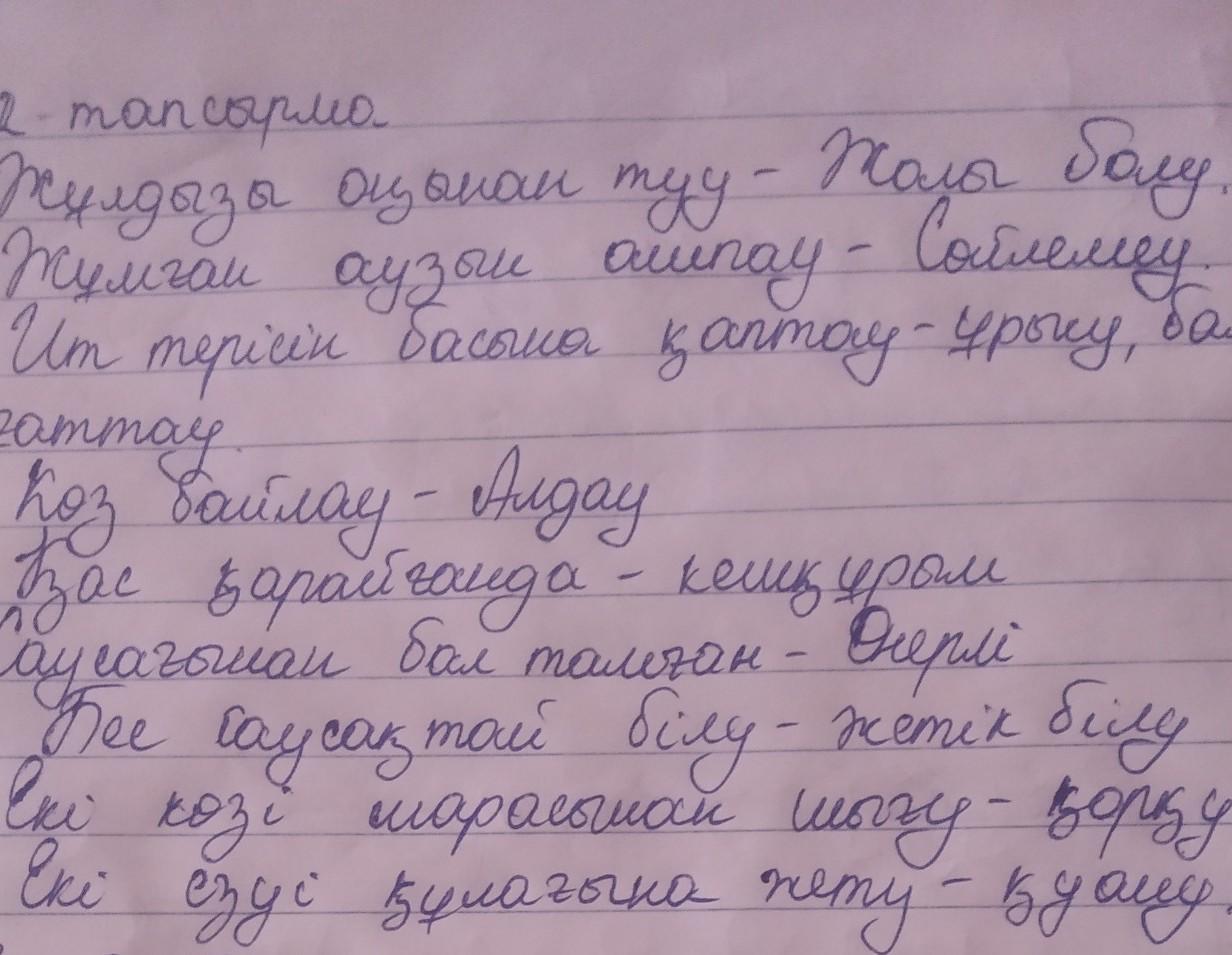 2-тапсырма
Жұлдызы оңынан туу - Жолы болу.
Жұмған аузын ашпау - Сөйлемеу.
Ит терісін басына қаптау - ұрысу, ба
ғаттау.
Көз байлау - Алдау
Қас қарайғанда - кешқұрым
Саусағынан бал тамған - Өнерлі
Бес саусақтай білу - жетік білу
Екі көзі шарасынан шығу - қорқу
Екі езуі құлағына жету - қуану.